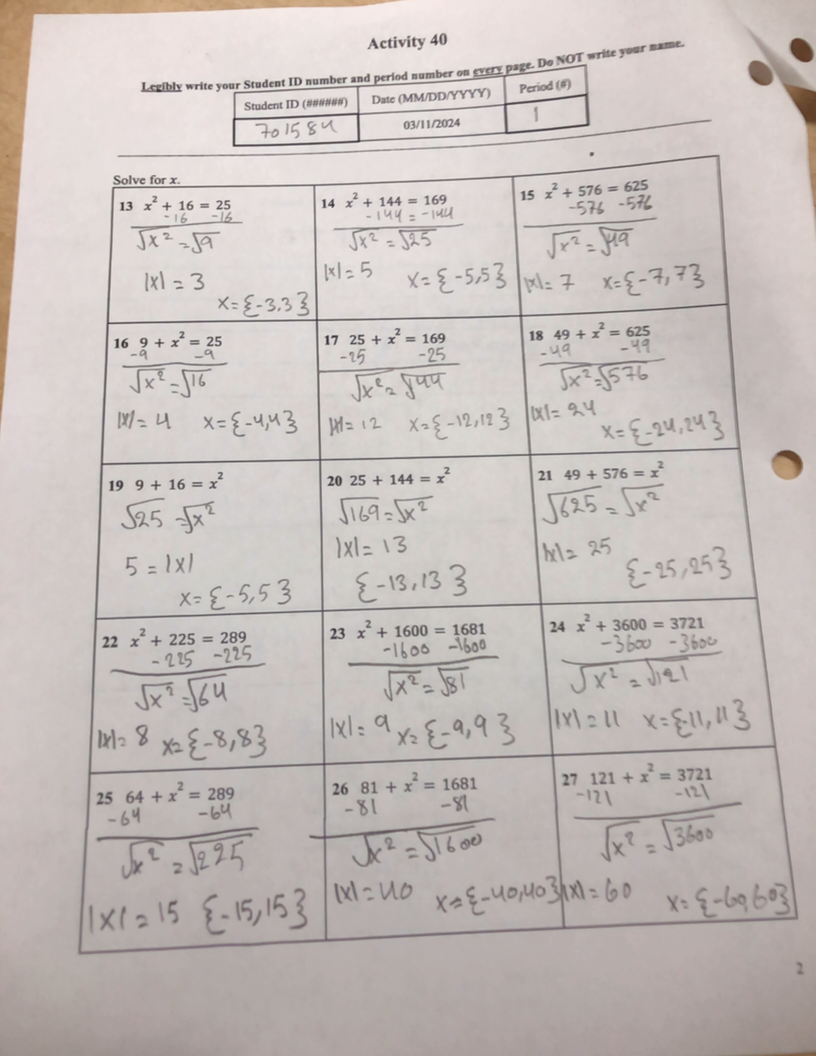 Activity 40
Legibly write your Student ID number and period number on every page. Do NOT write your name.
Student ID (######) Date (MM/DD/YYYY) Period (#)
701584 03/11/2024 1
Solve for x.
13 x² + 16 = 25
-16 -16
√x² = √9
|x| = 3
x = {-3,3}
14 x² + 144 = 169
-144 = -144
√x² = √25
|x| = 5 x = {-5,5}
15 x² + 576 = 625
-576 -576
√x² = √49
|x| = 7 x = {-7,7}
16 9 + x² = 25
-9 -9
√x² = √16
|x| = 4 x = {-4,4}
17 25 + x² = 169
-25 -25
√x² = √144
|x| = 12 x = {-12,12}
18 49 + x² = 625
-49 -49
√x² = √576
|x| = 24
x = {-24,24}
19 9 + 16 = x²
√25 = √x²
5 = |x|
x = {-5,5}
20 25 + 144 = x²
√169 = √x²
|x| = 13
{-13,13}
21 49 + 576 = x²
√625 = √x²
|x| = 25
{-25,25}
22 x² + 225 = 289
-225 -225
√x² = √64
|x| = 8 x = {-8,8}
23 x² + 1600 = 1681
-1600 -1600
√x² = √81
|x| = 9 x = {-9,9}
24 x² + 3600 = 3721
-3600 -3600
√x² = √121
|x| = 11 x = {-11,11}
25 64 + x² = 289
-64 -64
√x² = √225
|x| = 15 {-15,15}
26 81 + x² = 1681
-81 -81
√x² = √1600
|x| = 40 x = {-40,40}
27 121 + x² = 3721
-121 -121
√x² = √3600
|x| = 60 x = {-60,60}
2